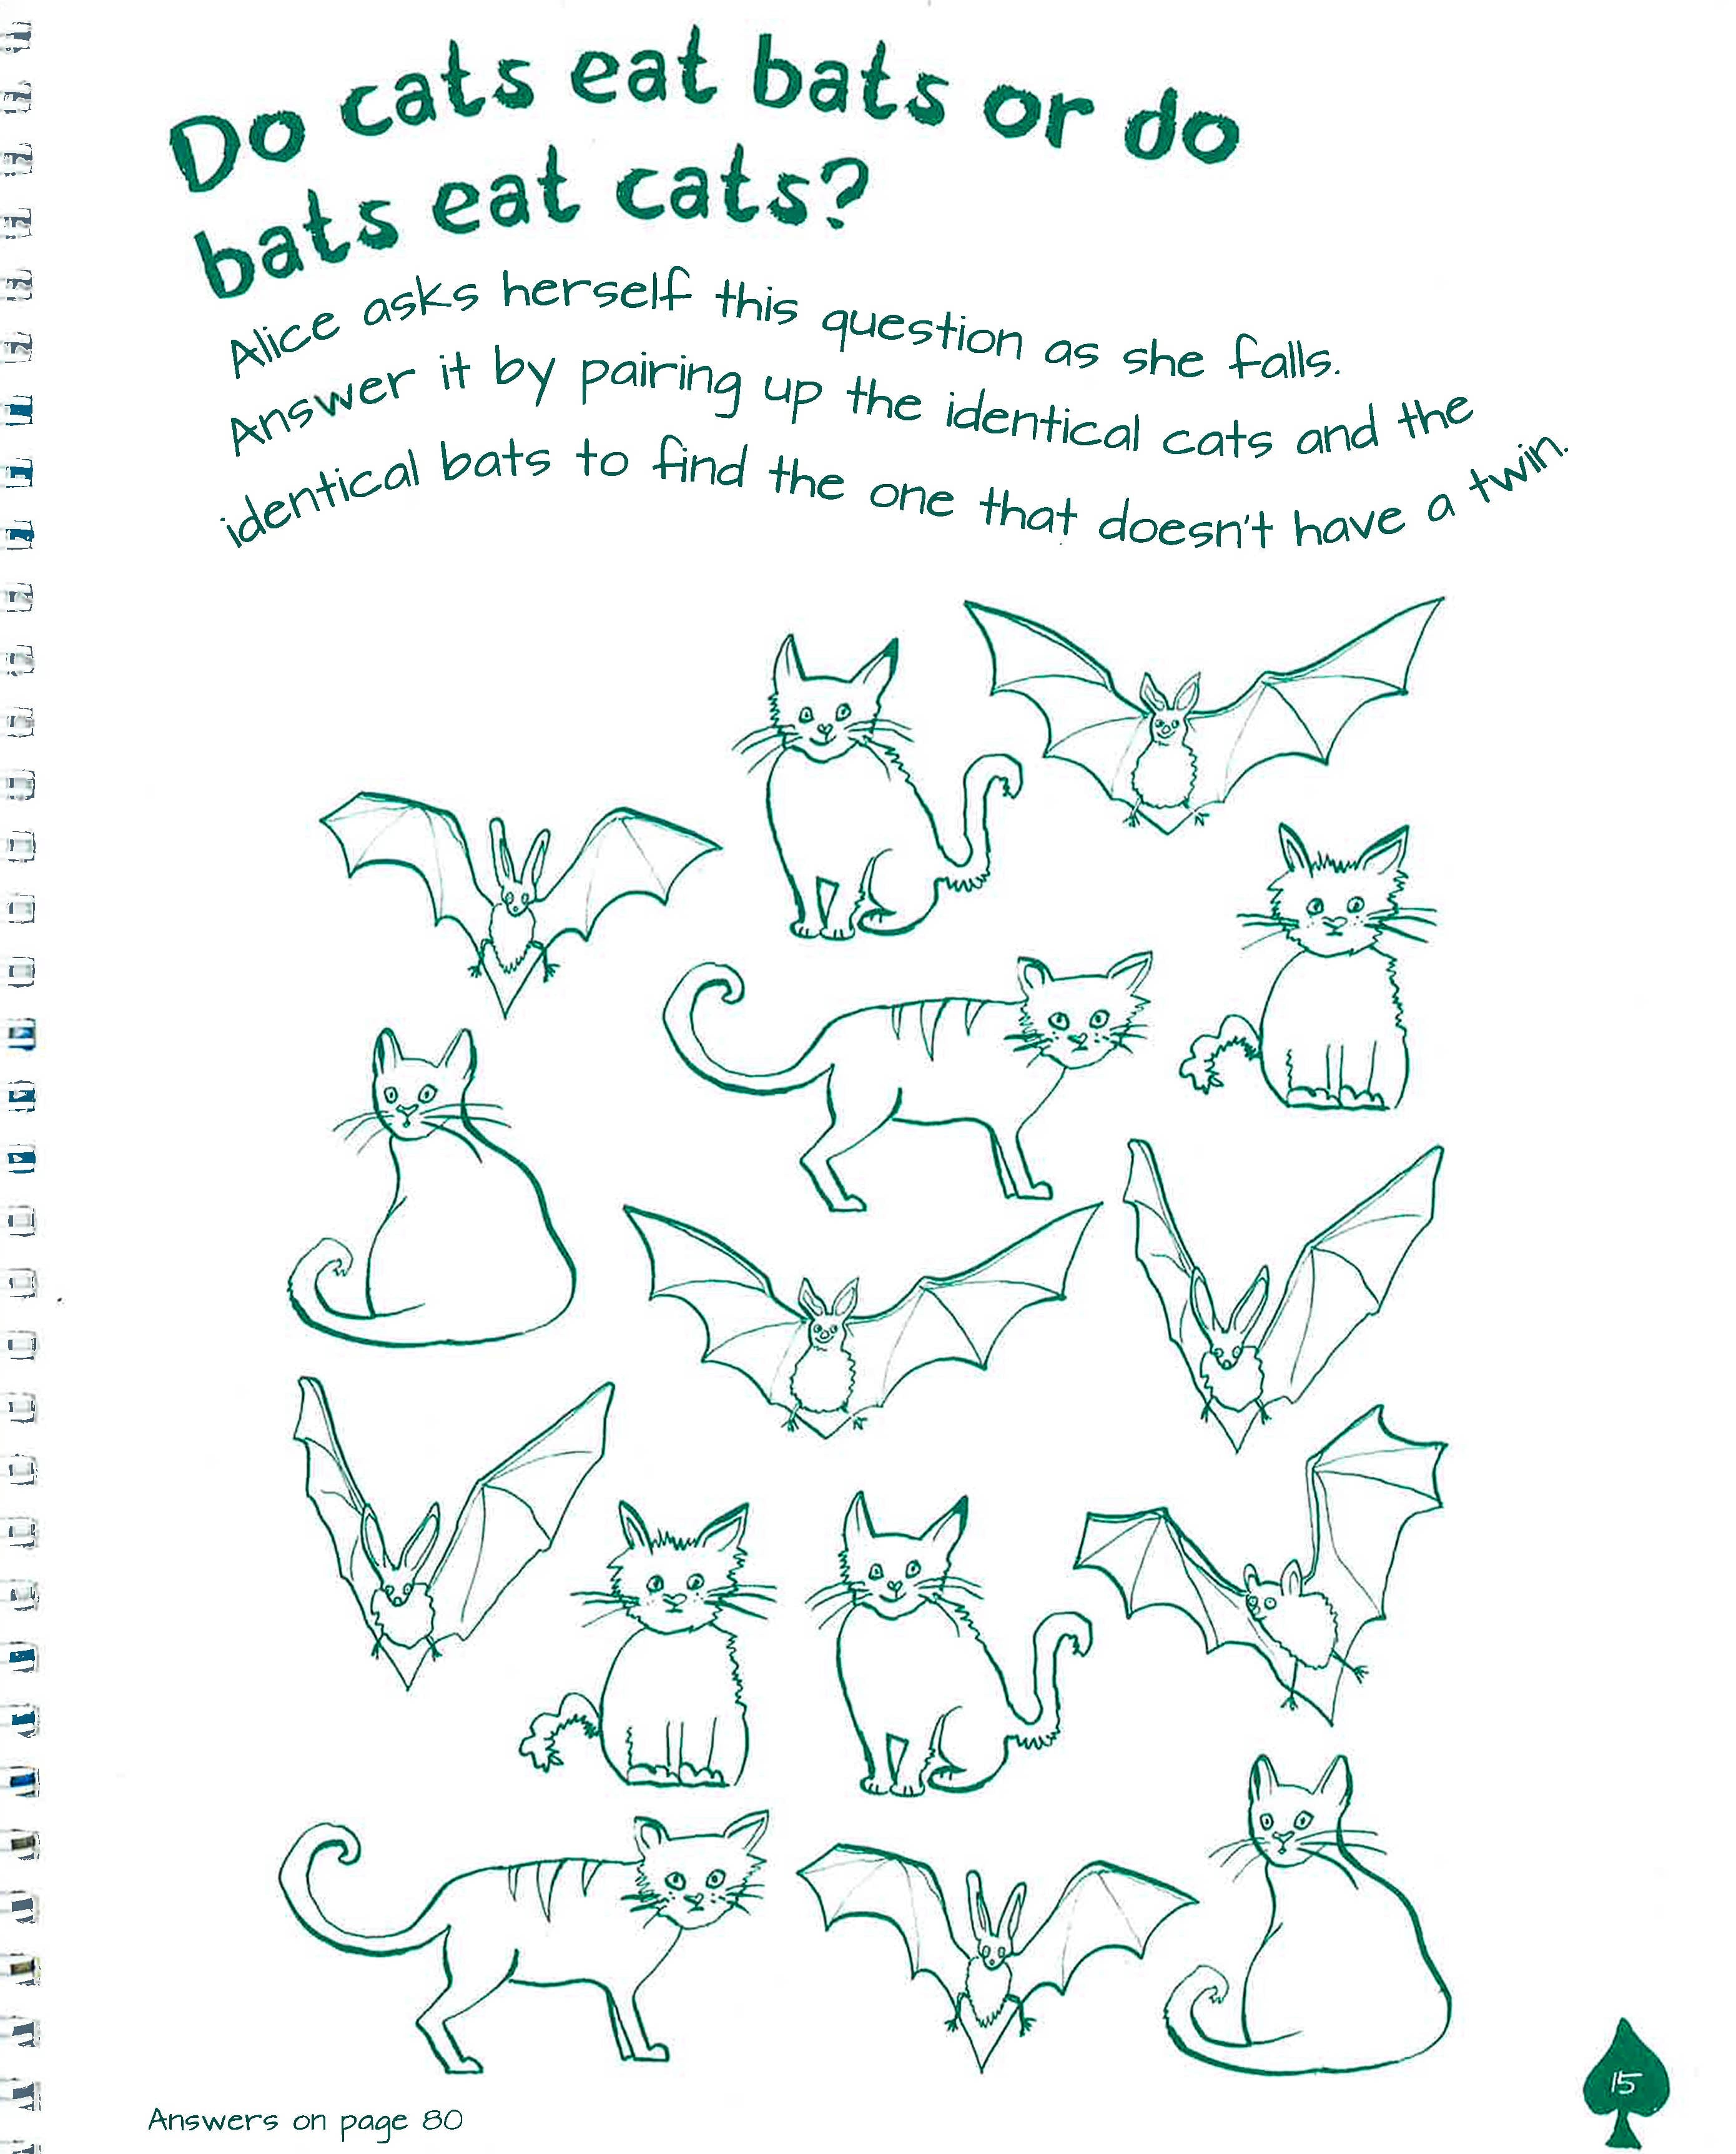 Do cats eat bats or do
bats eat cats?
Alice asks herself this question as she falls.
Answer it by pairing up the identical cats and the
identical bats to find the one that doesn't have a twin.
Answers on page 80
15